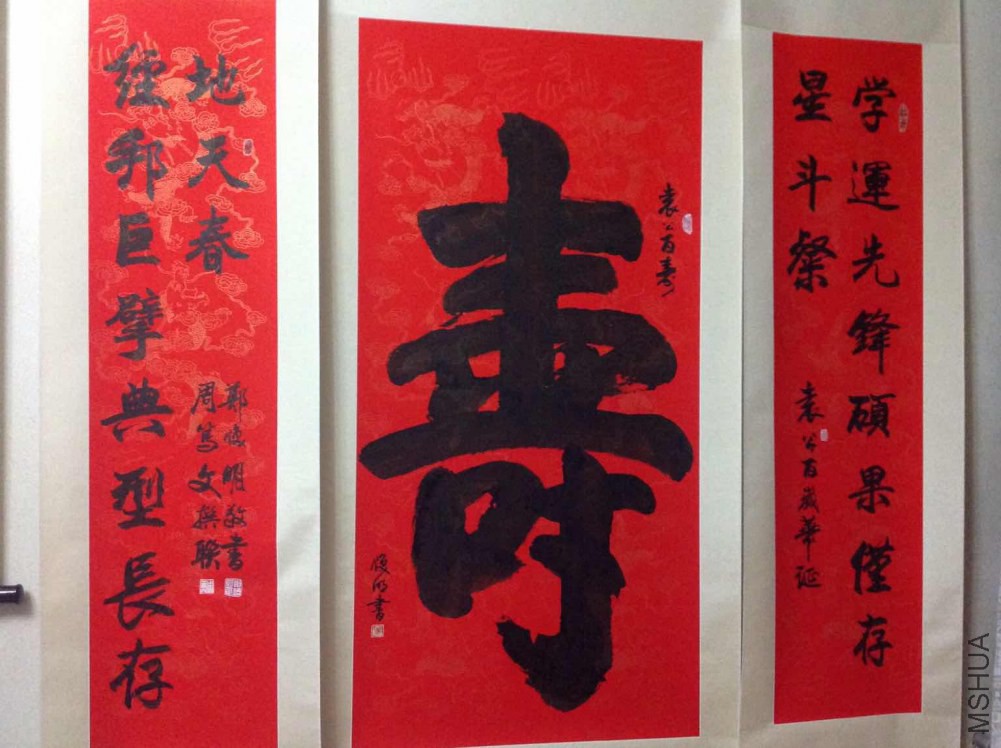 学運先鋒碩果僅存
星斗粲
袁公百歲華诞
袁公百寿
壽
俊明書
經邦巨擘典型長存
地天春
周篤文撰聯
鄭俊明敬書
MSHUA